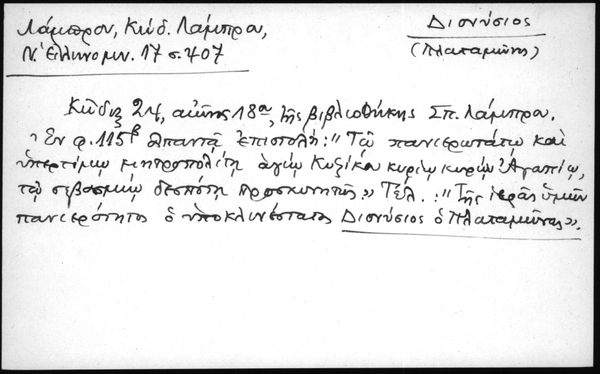 Λάμπρου, Κώδ. Λάμπρου,
Ν. Ἑλληνομν. 17 σ. 407
Διονύσιος
(Πλαταμῶνος)
Κῶδιξ 24, αἰῶνος 18ου, τῆς βιβλιοθήκης Σπ. Λάμπρου.
Ἐν φ. 115β ἀπαντᾷ ἐπιστολή: "Τῷ πανιερωτάτῳ καὶ
ὑπερτίμῳ μητροπολίτῃ ἁγίῳ Κυζίκου κυρίῳ κυρίῳ Ἀγαπίῳ,
τῷ σεβασμίῳ δεσπότῃ προσκυνητῶς." Τέλ.: "Τῆς ἱερᾶς ὑμῶν
πανιερότητος ὁ ὑποκλινέστατος Διονύσιος ὁ Πλαταμῶνος".